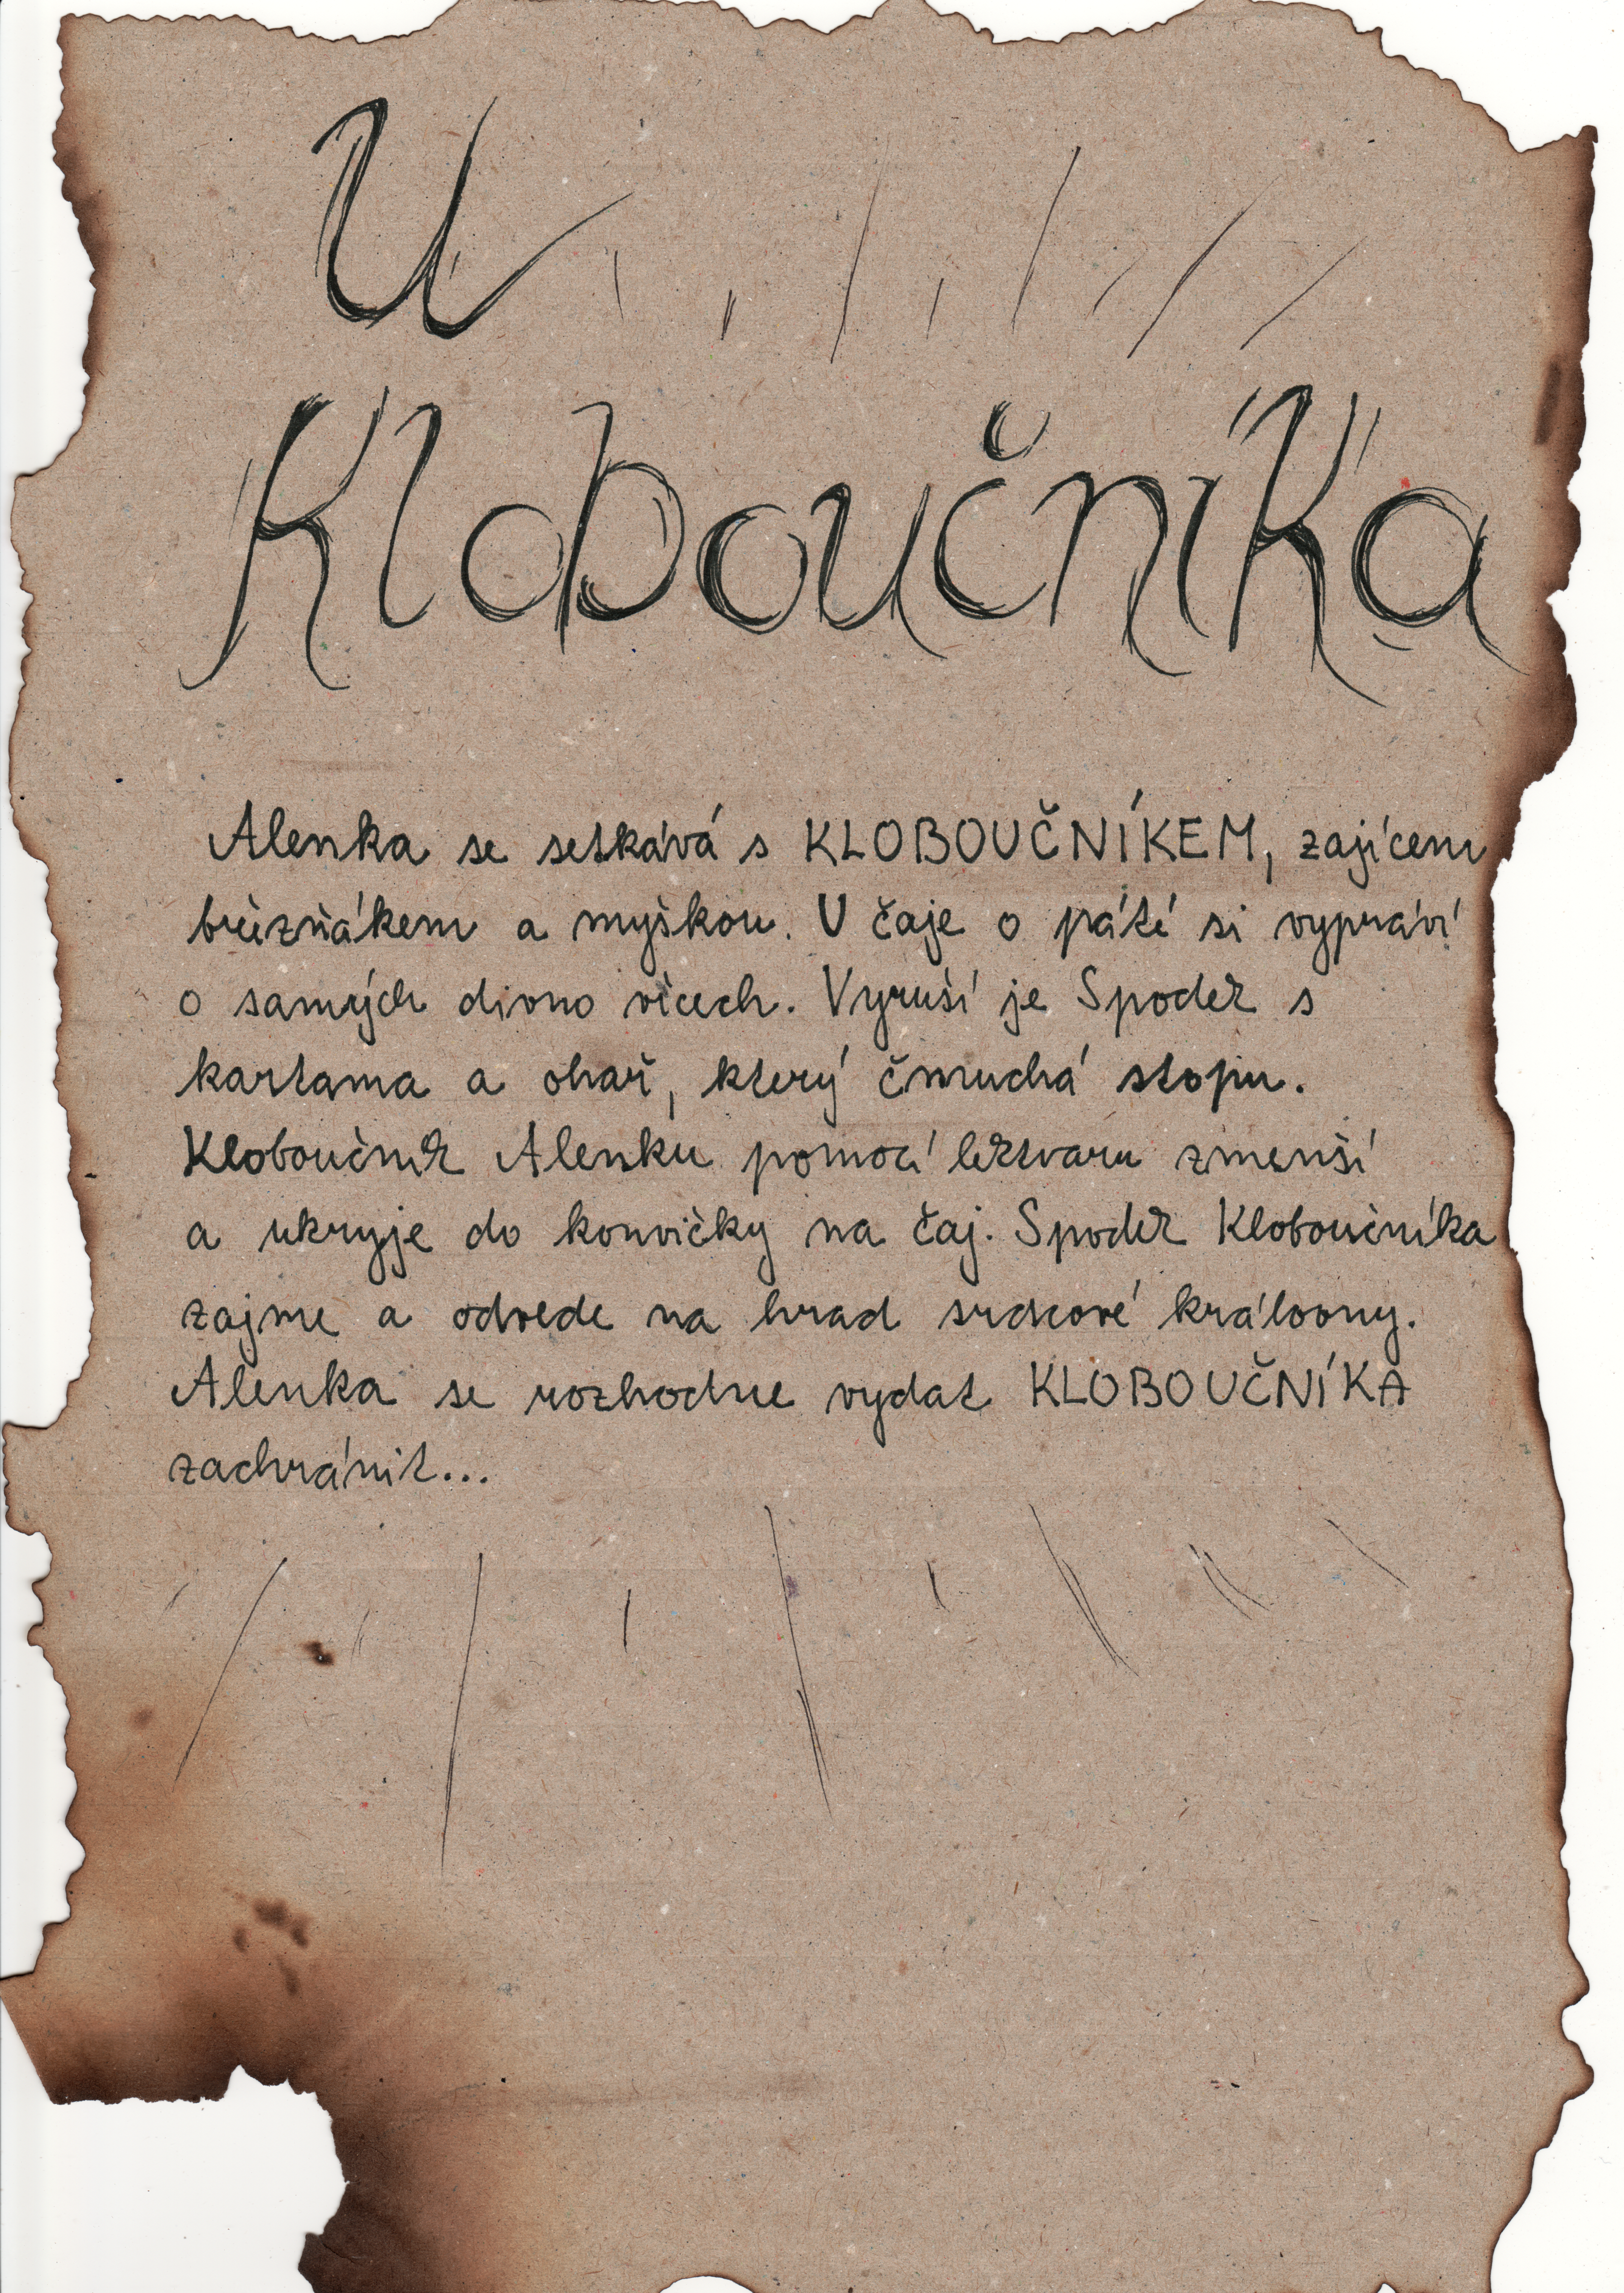 U
Kloboučníka
Alenka se setkává s KLOBOUČNÍKEM, zajícem
březňákem a myškou. U čaje o páté si vypráví
o samých divno věcech. Vyruší je Spodek s
kartama a ohař, který čmuchá stopu.
Kloboučník Alenku pomocí lektvaru zmenší
a ukryje do konvičky na čaj. Spodek Kloboučníka
zajme a odvede na hrad srdcové královny.
Alenka se rozhodne vydat KLOBOUČNÍKA
zachránit...